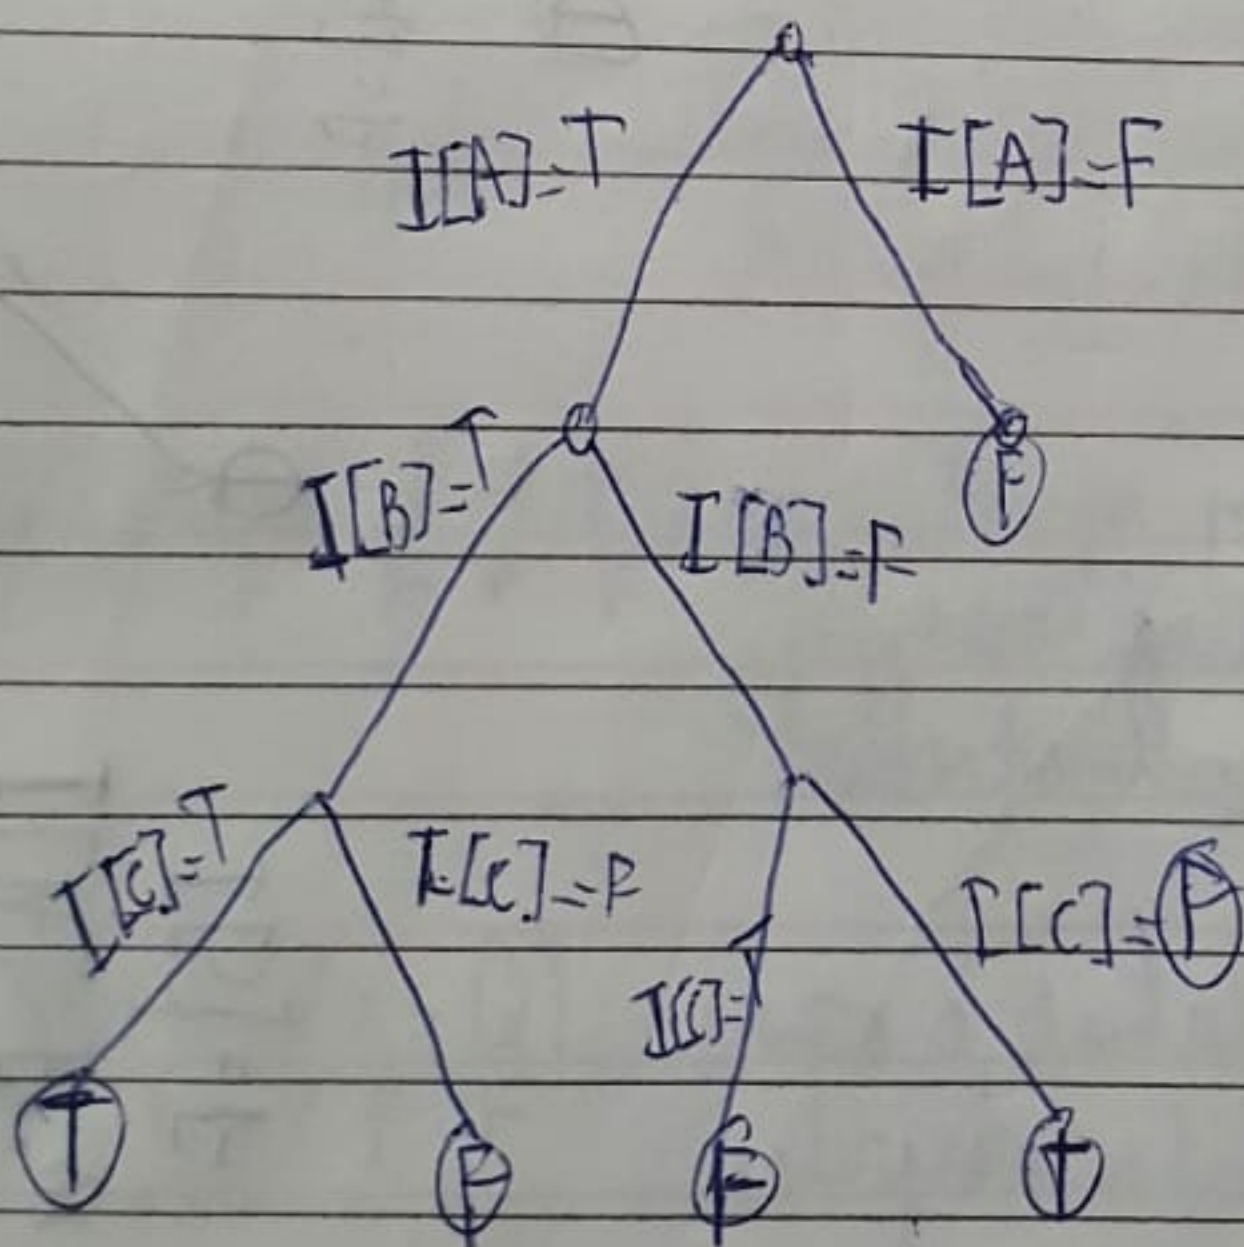 I[A]=T I[A]=F
F
I[B]=T I[B]=F
I[C]=T I[C]=F I[C]=T I[C]=F
T F F T